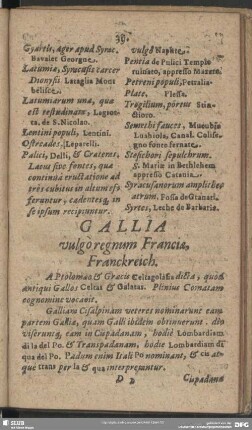 39.
Gyartis, ager apud Syrac.
Bavaier Georgne.
Latumia, Syracusis carcer
Dionysii. Lataglia Mont
belisce.
Latumiarum una, qua
est testudinata, Lagrot-
ta, de S. Nicolao.
Lentini populi, Lentini.
Ostreades, Leparelli.
Palici, Delli, & Crateres,
Lacus sive fontes, qua
continua eructatione ad
tres cubitus in altum ef-
feruntur, cadentesq, in
se ipsum recipiuntur.
vulgò Naphte.
Pentia de Pulici Templo
ruinato, appresso Mazara.
Petreni populi, Petralia.
Place. Plessa.
Trogilium, portus Stin-
ctioro.
Semethi fauces, Mucubso
Lushiola, Canal. Culise.
gno fonte fernate.
Stesichori sepulchrum.
S. Maria in Bethlehem
appresso Catania.
Syracusanorum amplitheatrum. Fossa de Granati.
Syrtes, Leche de Barbaria.
GALLIA
vulgo regnum Francia,
Franckreich.
A Ptolomæo & Græcis Celtogalatia dicta, quod
antiqui Gallos Celtas & Galatas. Plinius Comatam
cognomine vocavit.
Galliam Cisalpinam veteres nominarunt eam
partem Italiæ, quam Galli ibidem obtinuerunt. di-
viserunt, eam in Cispadanam, hodie Lombardiam
di la del Po. & Transpadanam, hodie Lombardiam di
qua del Po. Padum enim Itali Po nominant, & cis at-
que trans per la & qua interpretantur.
D d
Cispadana